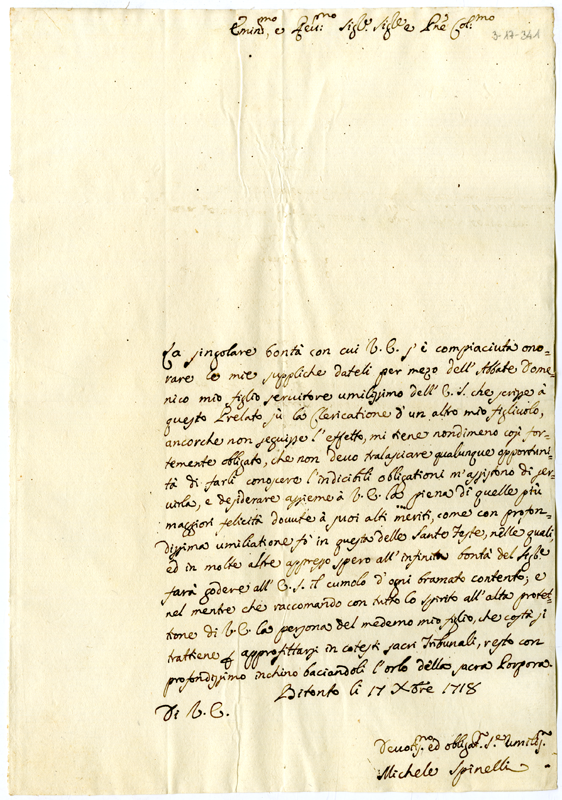 Emin.mo, e Rev.mo Sig.r Sig.r e Pne Col.mo
3-17-341
La singolare bontà con cui V. E. s'è compiaciuta ono=
rare le mie suppliche dateli per mezo dell'Abbate Dome=
nico mio figlio servitore umilissimo dell'E. S. che scrisse à
questo Prelato sù la Clericatione d'un altro mio figliuolo,
ancorche non seguisse l'effetto, mi tiene nondimeno così for=
temente obligato, che non devo tralasciare qualunque opportuni=
tà di farli conoscere l'indicibili obligationi m'assistono di ser=
virla, e desiderare assieme à V. E. la piena di quelle più
maggiori felicità dovute à suoi alti meriti, come con profon=
dissima umiliatione fò in questa delle Sante Feste, nelle quali,
ed in molte altre appresso spero all'infinita bontà del Sig.re
farà godere all'E. S. il cumolo d'ogni bramato contento; e
nel mentre che raccomando con tutto lo spirito all'alta protet=
tione di V. E. la persona del medemo mio figlio, che costà si
trattiene p approfittarsi in cotesti sacri Tribunali, resto con
profondissimo inchino baciandoli l'orlo della sacra Porpora.
Bitonto li 17 Xbre 1718
Di V. E.
Devotis.mo ed obligat.mo Se.re Umilis.mo
Michele Spinelli